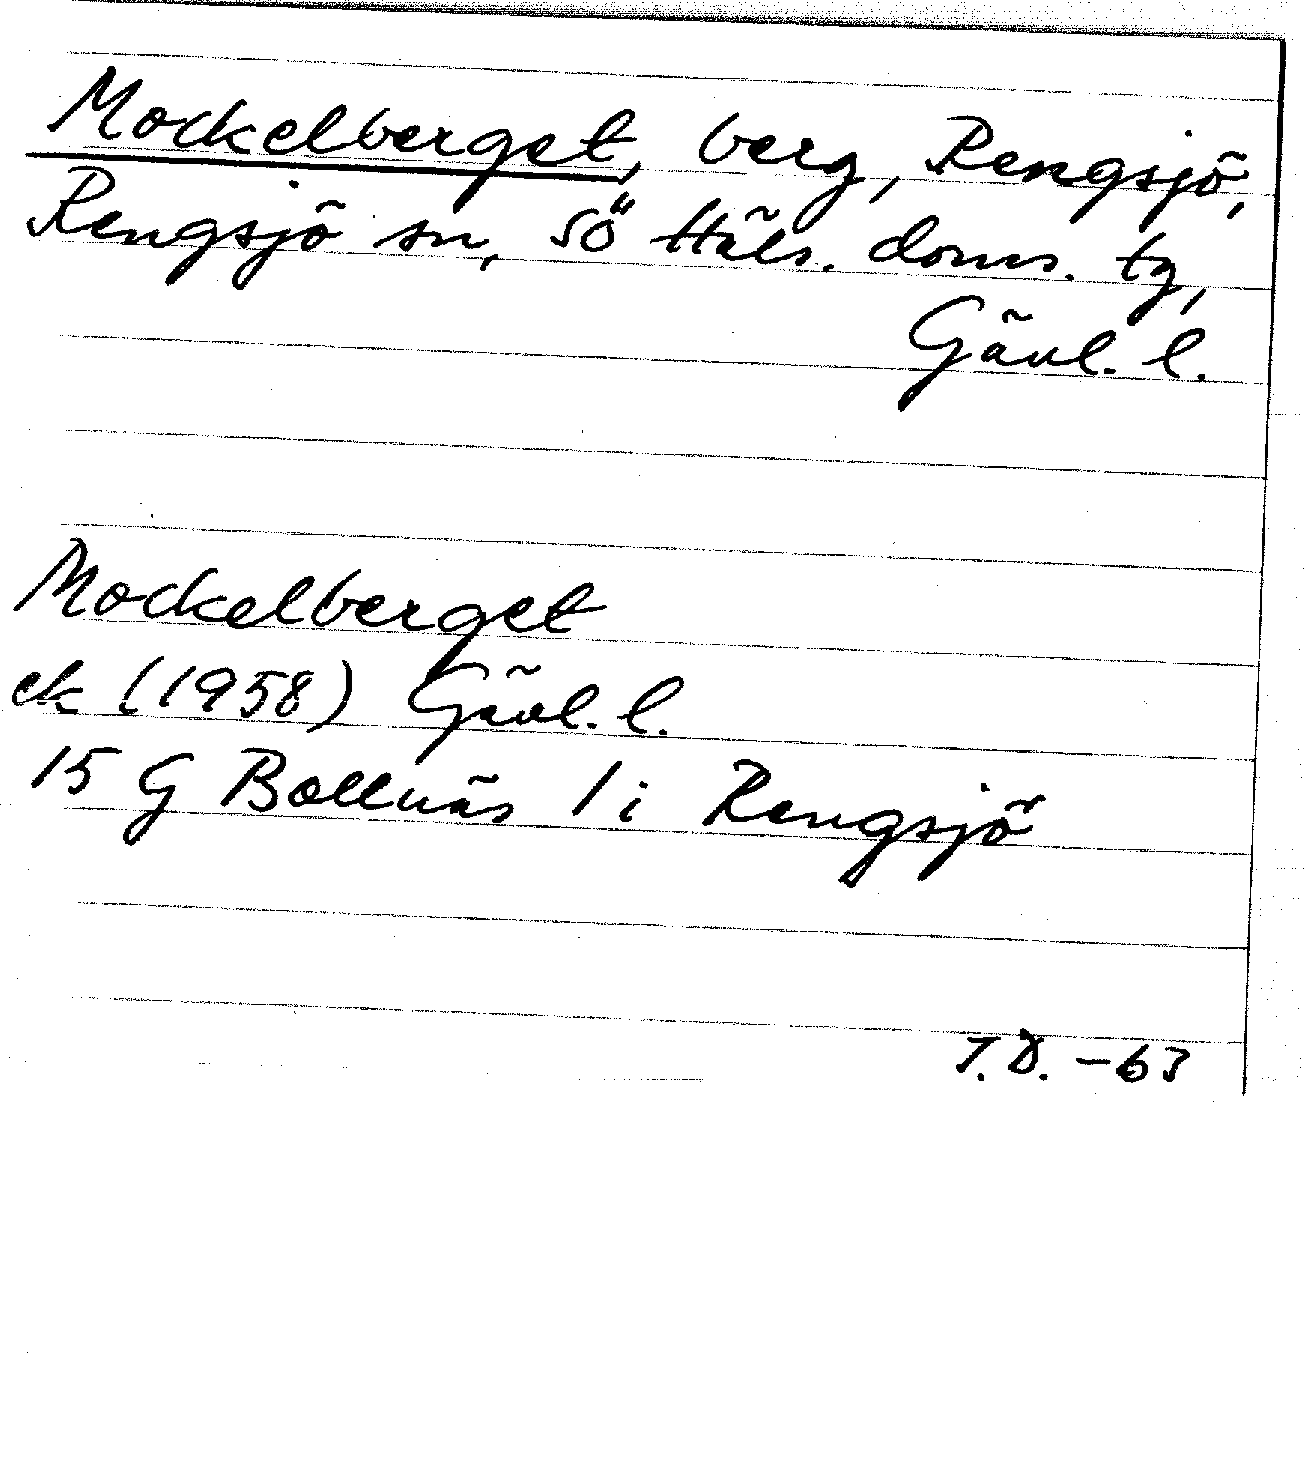 Mockelberget, berg, Rengsjö,
Rengsjö sn, SÖ Häls. doms. tg,
Gävl. l.
Mockelberget
ek (1958) Gävl. l.
15 G Bollnäs 1 i Rengsjö
T.D. -63